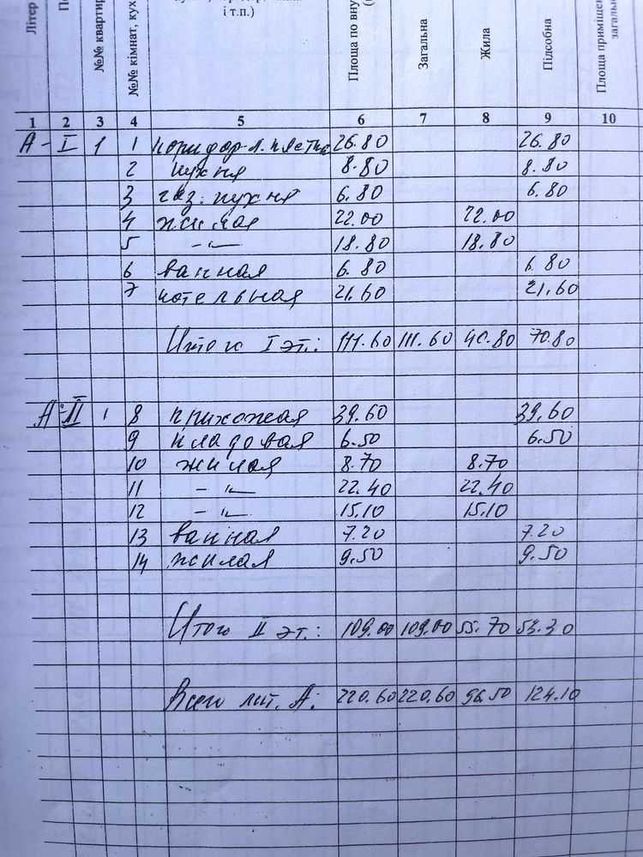 Літер
№№ квартир
№№ кімнат, кух
і т.п.)
Площа по вну
Загальна
Жила
Підсобна
Площа приміщен
загальн
1 2 3 4 5 6 7 8 9 10
А - I 1 1 коридор-л. клетка 26.80 26.80
2 кухня 8.80 8.80
3 газ. кухня 6.80 6.80
4 жилая 22.00 22.00
5 -"- 18.80 18.80
6 ванная 6.80 6.80
7 котельная 21.60 21.60
Итого I эт.: 111.60 111.60 40.80 70.80
А-II 1 8 прихожая 39.60 39.60
9 кладовая 6.50 6.50
10 жилая 8.70 8.70
11 -"- 22.40 22.40
12 -"- 15.10 15.10
13 ванная 7.20 7.20
14 жилая 9.50 9.50
Итого II эт.: 109.00 109.00 55.70 53.30
Всего лит. А: 220.60 220.60 96.50 124.10